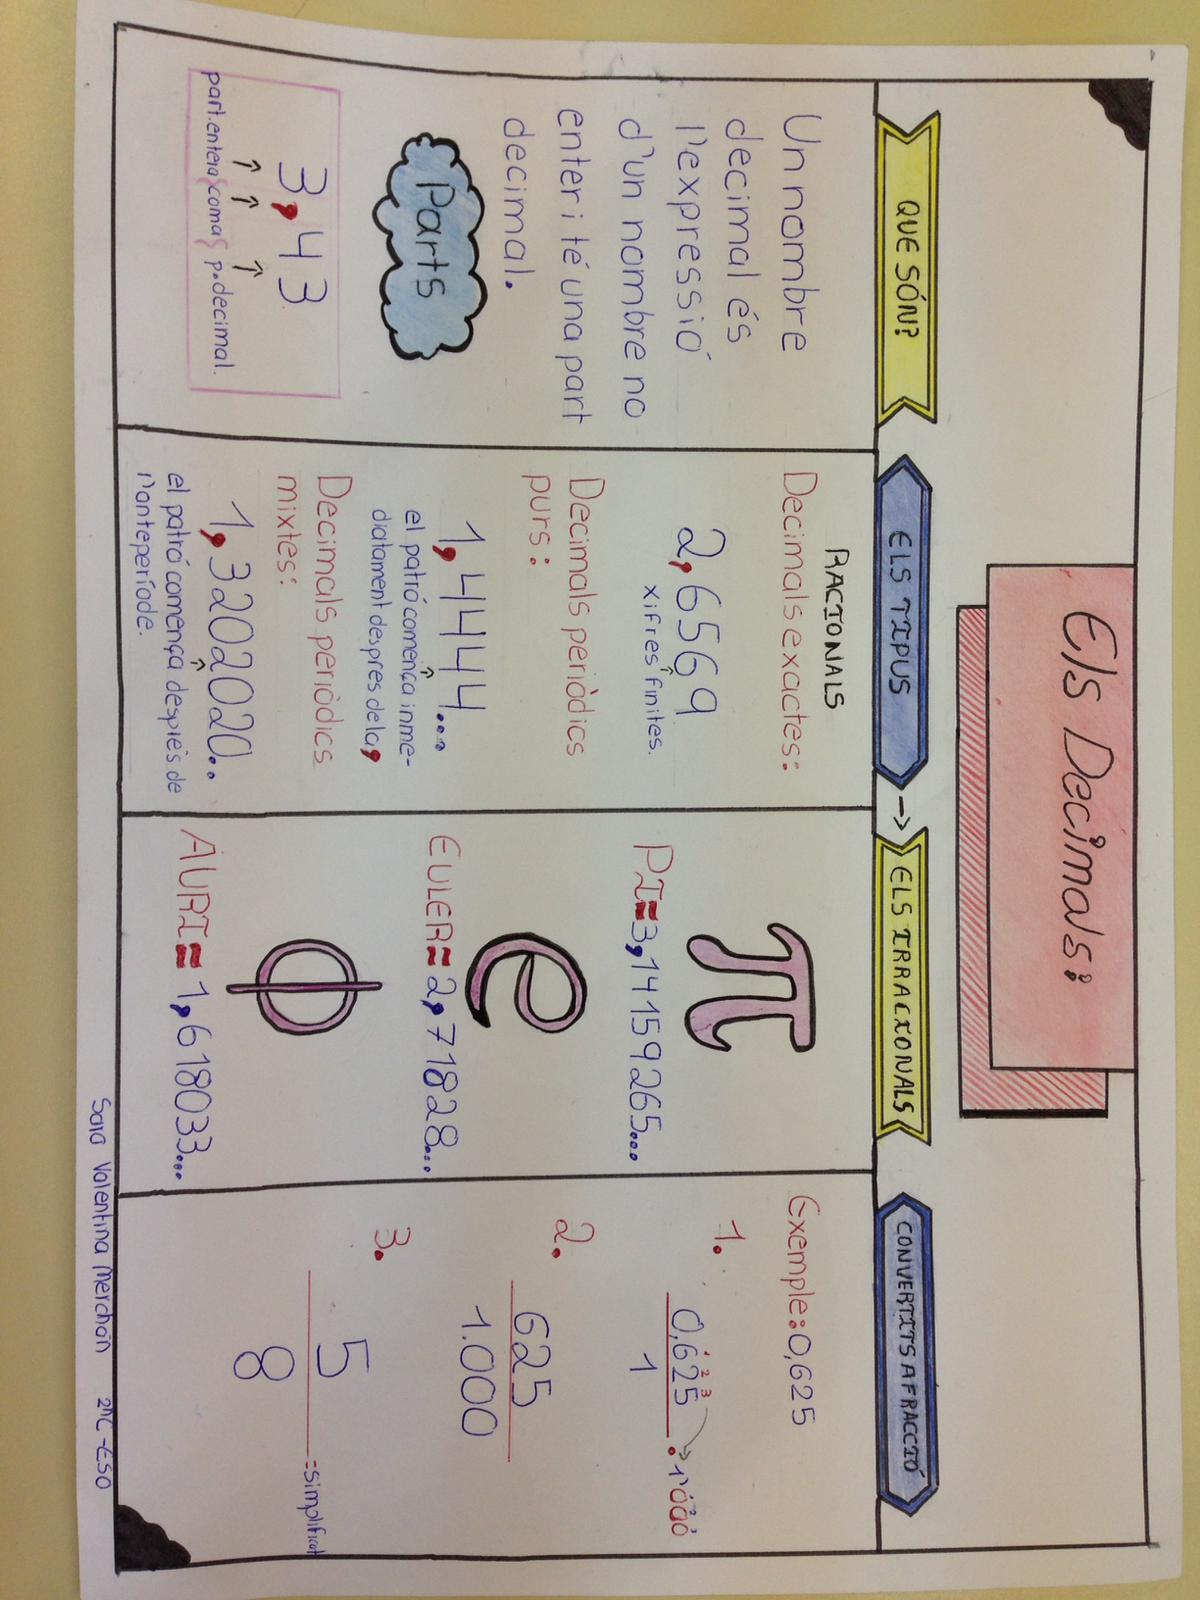 Els Decimals:
QUE SÓN?
Un nombre
decimal és
l'expressió
d'un nombre no
enter i té una part
decimal.
Parts
3,43
↑ ↑ ↑
part.entera coma p.decimal.
ELS TIPUS →
RACIONALS
Decimals exactes:
2,6569
xifres finites.
Decimals periòdics
purs:
1,4444...
el patró comença inme-
diatament despres de la ,
Decimals periòdics
mixtes:
1,3202020...
el patró comença després de
l'anteperíode.
ELS IRRACIONALS
π
PI=3,14159265...
e
EULER=2,71828...
φ
AURI=1,618033...
CONVERTITS A FRACCIÓ
Exemple:0,625
1.
1 2 3
0,625
1
.1000
2.
625
1.000
3.
5
8
=simplificat
Sara Valentina Merchán 2nC-ESO